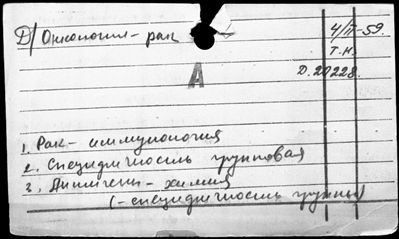 Д/ Онкология - рак
4/III-59.
Т.Н.
Д. 20228.
А
1. Рак - иммунология
2. Специфичность групповая
3. Антигены - химия
(- специфичность группы)